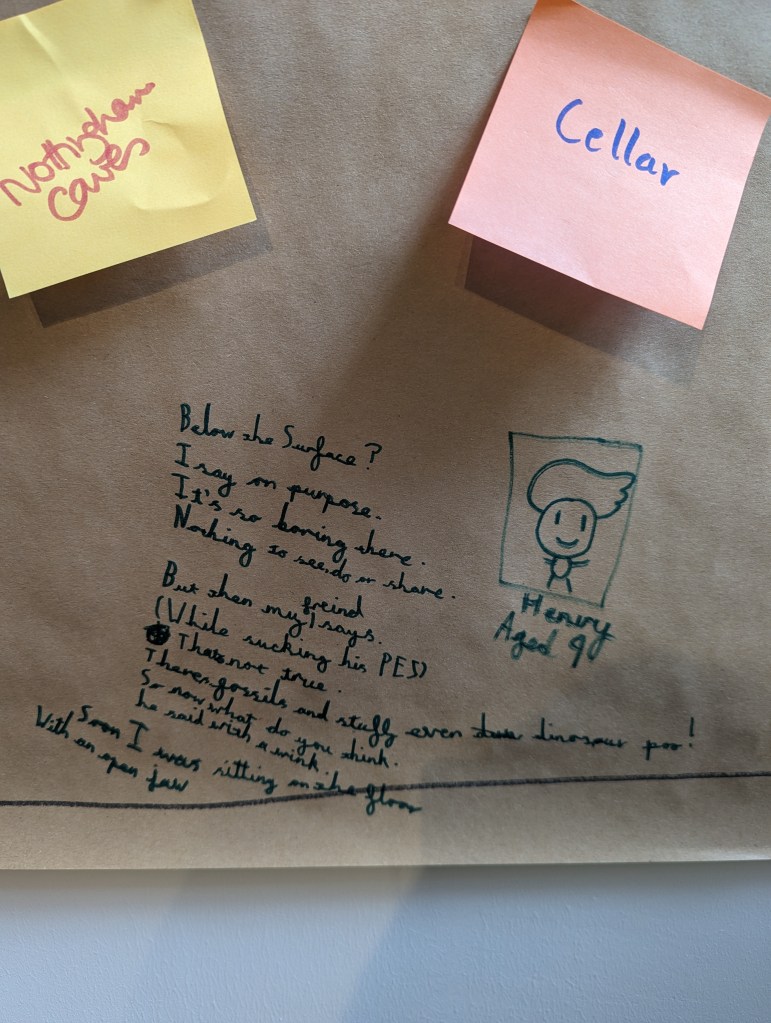 Nottingham
Caves
Cellar
Below the Surface?
I say on purpose.
It's so boring there.
Nothing to see, do or share.
But then my freind says.
(While sucking his PES)
Thats not true.
Theres gossils and stuff, even dinosaur poo!
So now what do you think.
he said with a wink.
Soon I was sitting on the floor
With an open jaw
Henry
Aged 9